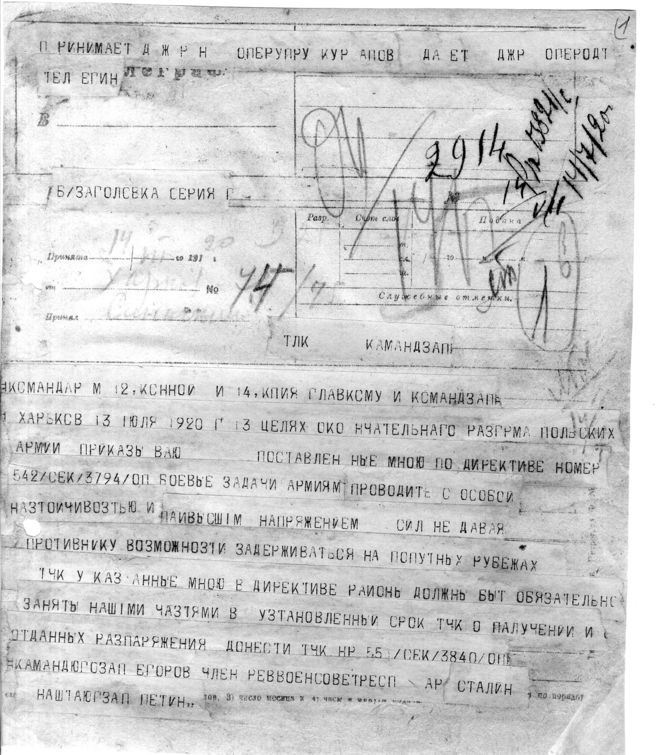 1
П РИНИМАЕТ Д Ж Р Н ОПЕРУПРУ КУР АПОВ ДА ЕТ ДЖР ОПЕРОДТ
ТЕЛ ЕГИН
В
2914
14/7/20
Б/ЗАГОЛОВКА СЕРИЯ Г
№
Разр. Счет слов Подана
Принята 14 го 191 20
от № 75
Служебные отметки.
Принял
ТЛК КАМАНДЗАП
КОМАНДАР М 12, КОННОЙ И 14, КПИЯ ГЛАВКОМУ И КОМАНДЗАПА
ХАРЬКОВ 13 ІЮЛЯ 1920 Г 13 ЦЕЛЯХ ОКО НЧАТЕЛЬНАГО РАЗГРМА ПОЛЬСКИХ
АРМИИ ПРИКАЗЫ ВАЮ ПОСТАВЛЕН НЫЕ МНОЮ ПО ДИРЕКТИВЕ НОМЕР
542/СЕК/3794/ОП БОЕВЫЕ ЗАДАЧИ АРМИЯМ ПРОВОДИТЬ С ОСОБОЙ
НАЗТОЙЧИВОЗТЬЮ И НАИВЫСШІМ НАПРЯЖЕНИЕМ СИЛ НЕ ДАВАЯ
ПРОТИВНИКУ ВОЗМОЖНОЗТИ ЗАДЕРЖИВАТЬСЯ НА ПОПУТНЫХ РУБЕЖАХ
ТЧК У КАЗАННЫЕ МНОЮ В ДИРЕКТИВЕ РАИОНЫ ДОЛЖНЫ БЫТ ОБЯЗАТЕЛЬНО
ЗАНЯТЫ НАШІМИ ЧАЗТЯМИ В УЗТАНОВЛЕННЫЙ СРОК ТЧК О ПАЛУЧЕНИИ И
ОТДАННЫХ РАЗПАРЯЖЕНИЯ ДОНЕСТИ ТЧК НР 55 /СЕК/3840/ОП
КАМАНДЮГОЗАП ЕГОРОВ ЧЛЕН РЕВВОЕНСОВЕТРЕСП АР СТАЛИН
НАШТАЮГЗАП ПЕТИН,,